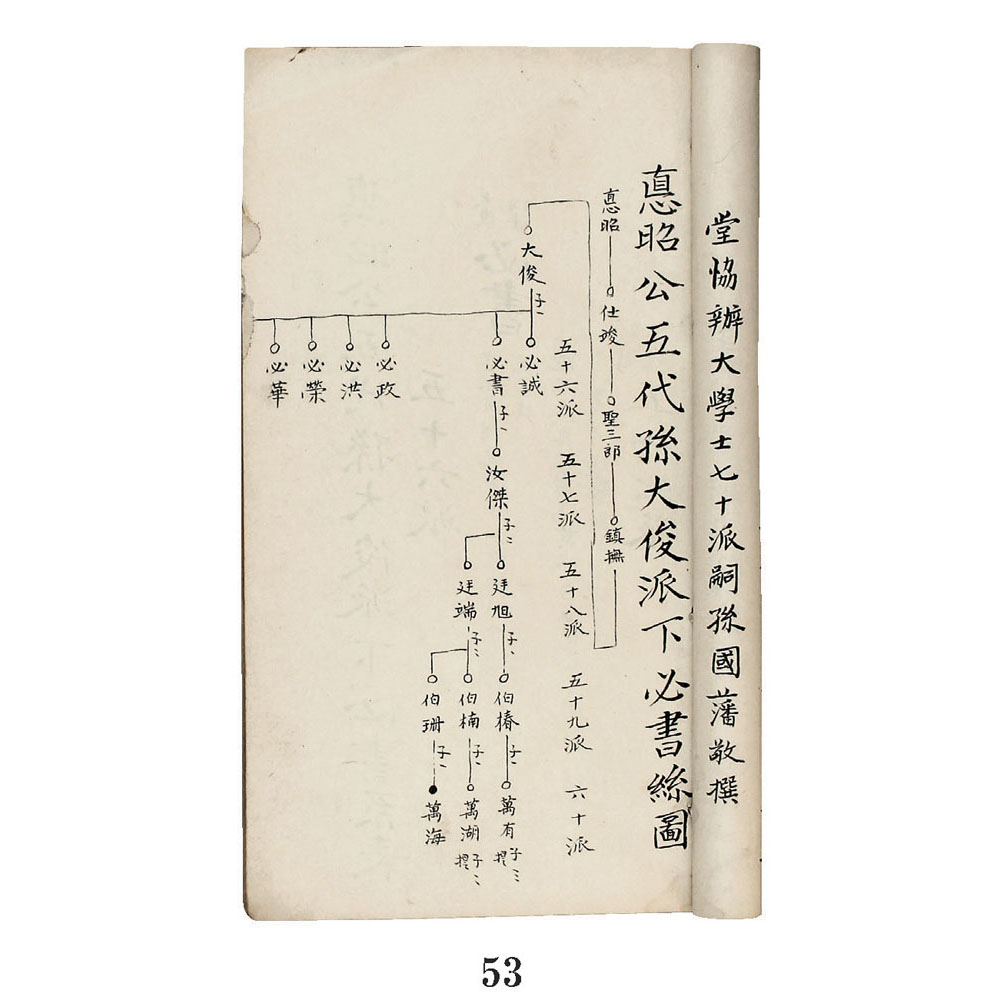 堂恊辦大學士七十派嗣孫國藩敬撰
悳昭公五代孫大俊派下必書絲圖
悳昭
仕竣
聖三郎
鎮撫
五十六派
五十七派
五十八派
五十九派
六十派
大俊
子一
必誠
必書
子一
必政
必洪
必榮
必華
汝傑
子二
廷旭
子一
廷端
子二
伯椿
子一
伯楠
子一
伯珊
子一
萬有
子三
萬湖
子二
萬海
53